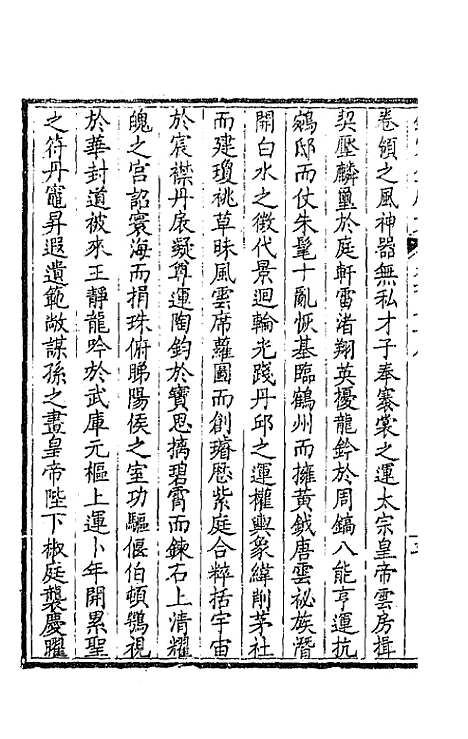 卷領之風神器無私才子奉褰裳之運太宗皇帝雲房揖
契壓麟璽於庭軒雷渚翔英擾龍鈐於周鎬八能亨運抗
鵷邸而仗朱髦十亂恢基臨鶴州而擁黃鉞唐雲祕族潛
開白水之徵代景迴輪光踐丹邱之運權輿象緯削茅社
而建瓊桃草昧風雲席蘿圖而創璿厯紫庭合粹括宇宙
於宸襟丹扆凝尊運陶鈞於寶思摛碧霄而鍊石上清耀
魄之宫詔寰海而捐珠俯睇陽侯之室功驅偃伯頓鶉視
於華封道被來王靜龍吟於武庫元樞上運卜年開累聖
之符丹竈昇遐遺範敞謀孫之晝皇帝陛下椒庭襲慶曜